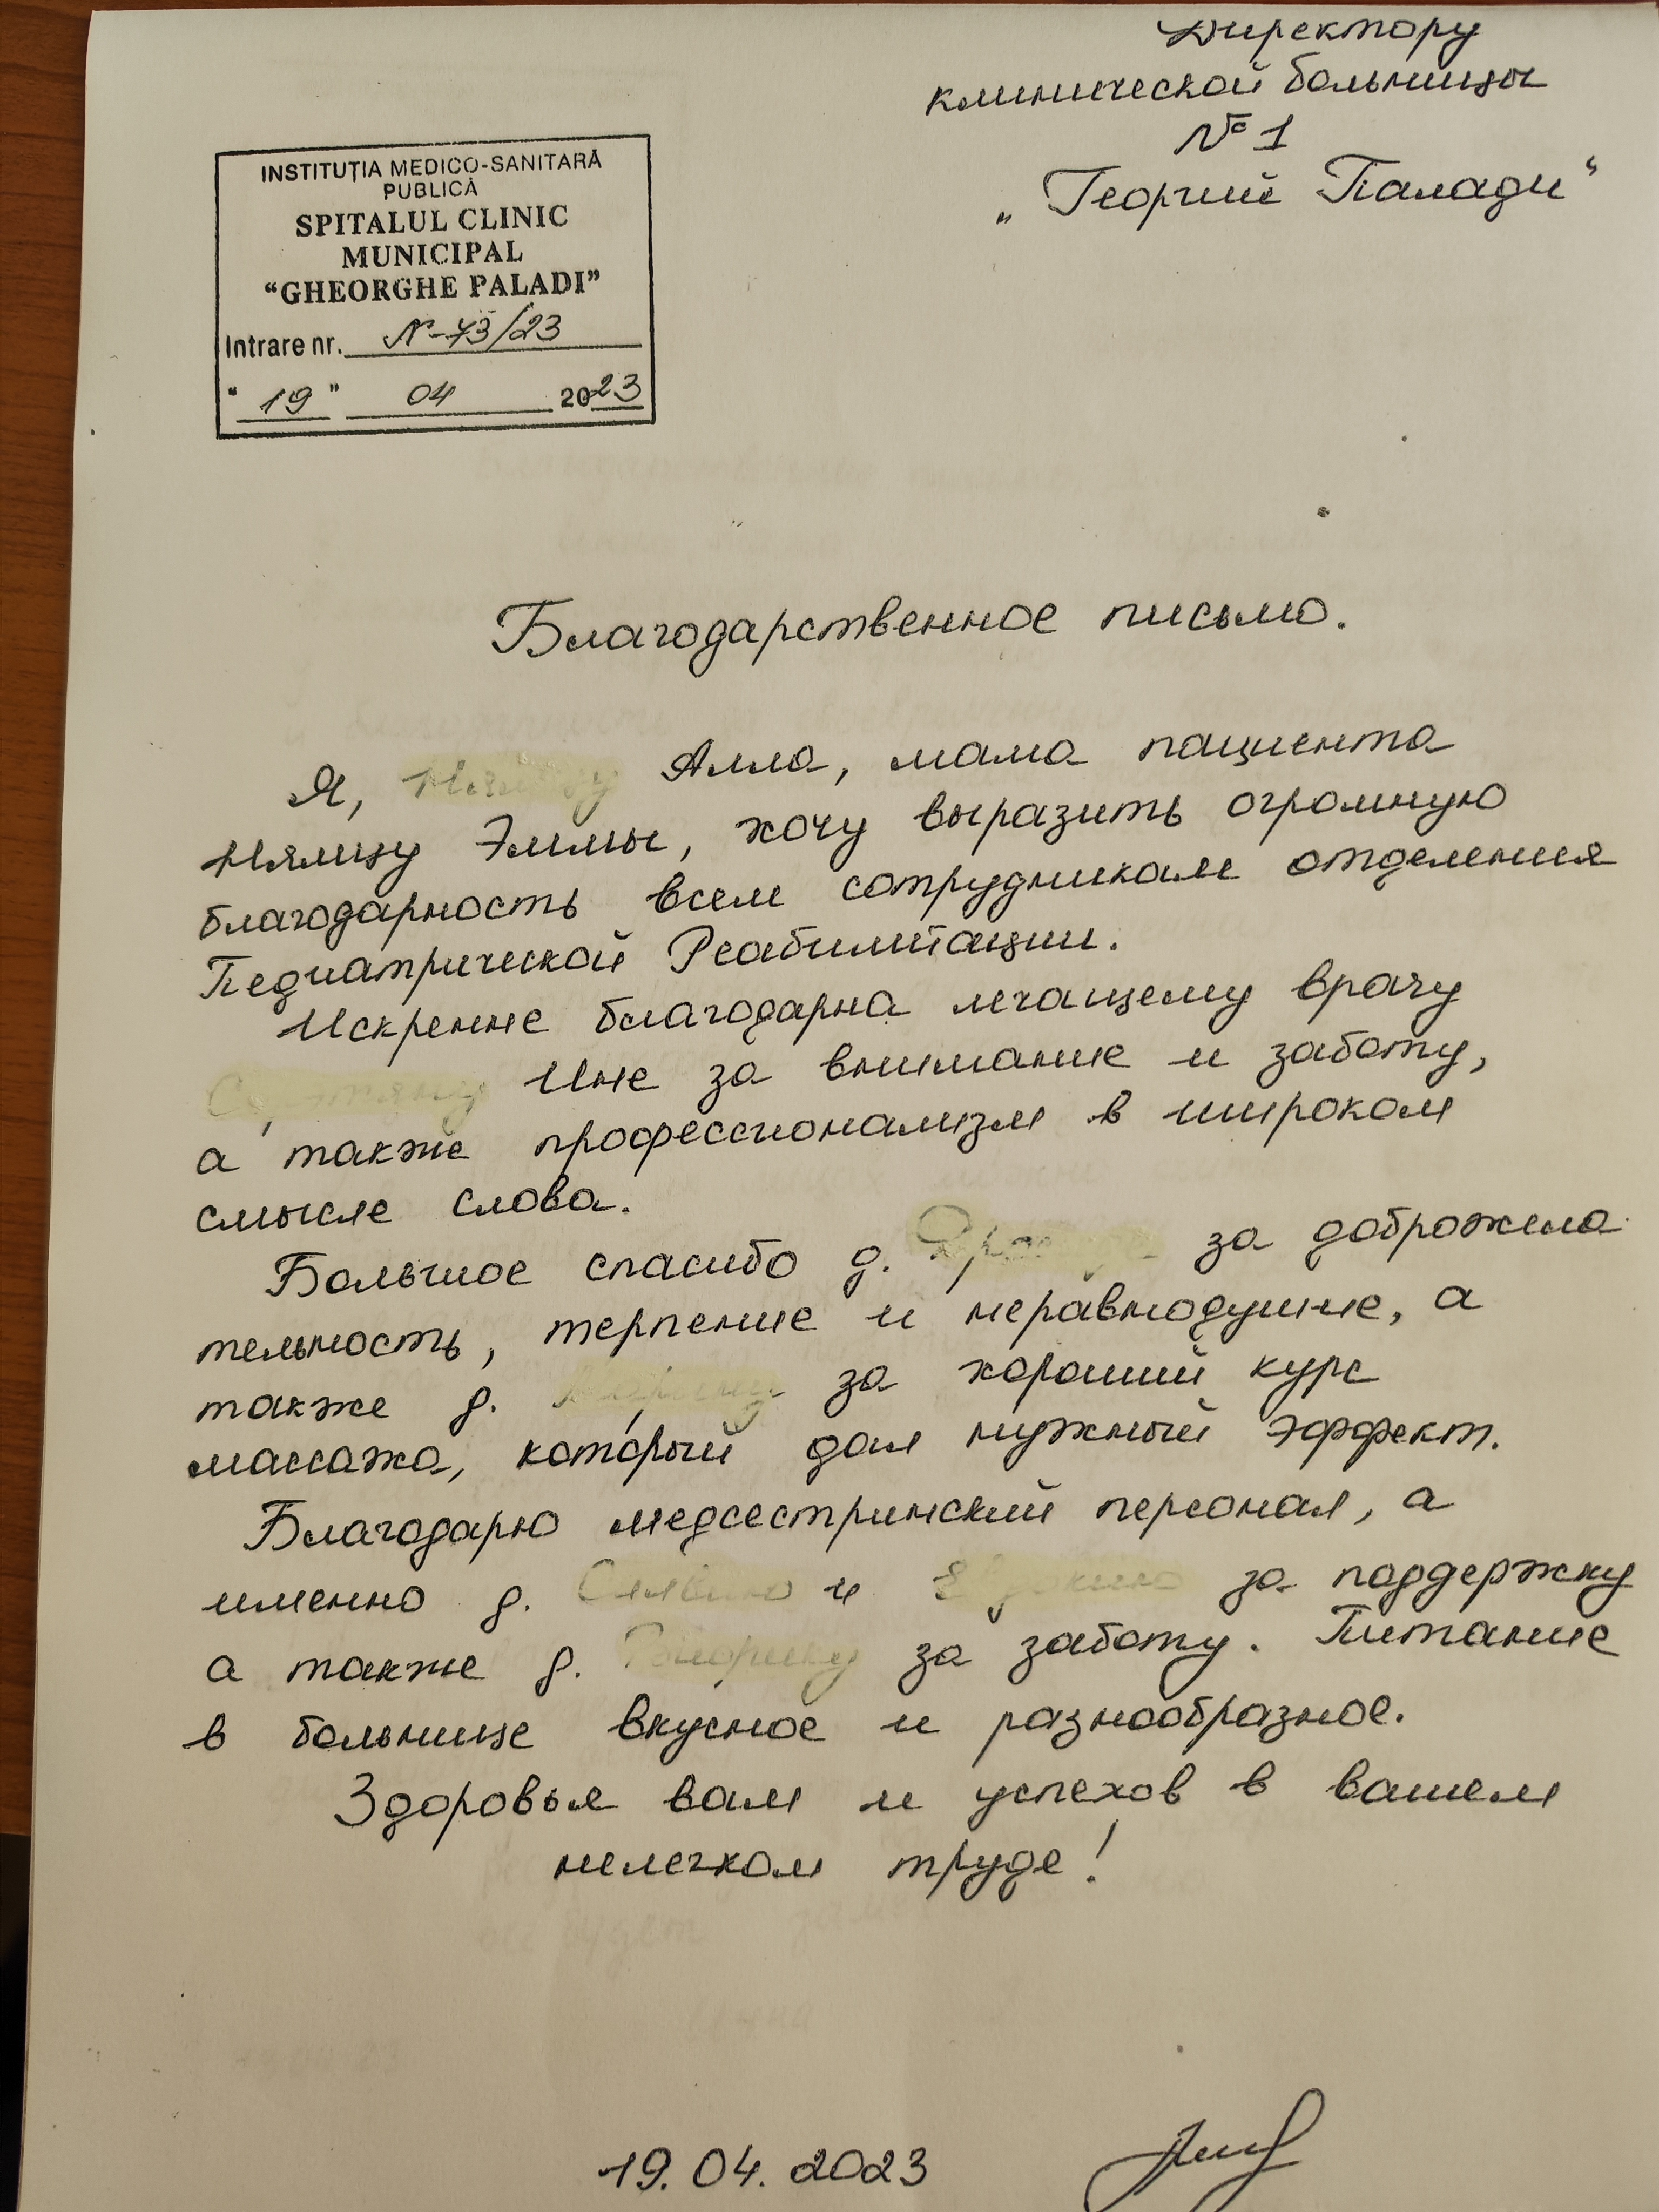 Директору
клинической больницы
№ 1
„Георгий Палади“
INSTITUȚIA MEDICO-SANITARĂ
PUBLICĂ
SPITALUL CLINIC
MUNICIPAL
“GHEORGHE PALADI”
Intrare nr. N-73/23
“ 19 ” 04 2023
Благодарственное письмо.
Я, Алла, мама пациента
Нямцу Эммы, хочу выразить огромную
благодарность всем сотрудникам отделения
Педиатрической Реабилитации.
Искренне благодарна лечащему врачу
Ине за внимание и заботу,
а также профессионализм в широком
смысле слова.
Большое спасибо д. за доброжела
тельность, терпение и неравнодушие, а
также д. за хороший курс
массажа, который дал нужный эффект.
Благодарю медсестринский персонал, а
именно д. и за поддержку
а также д. за заботу. Питание
в больнице вкусное и разнообразное.
Здоровья вам и успехов в вашем
нелегком труде!
19.04.2023